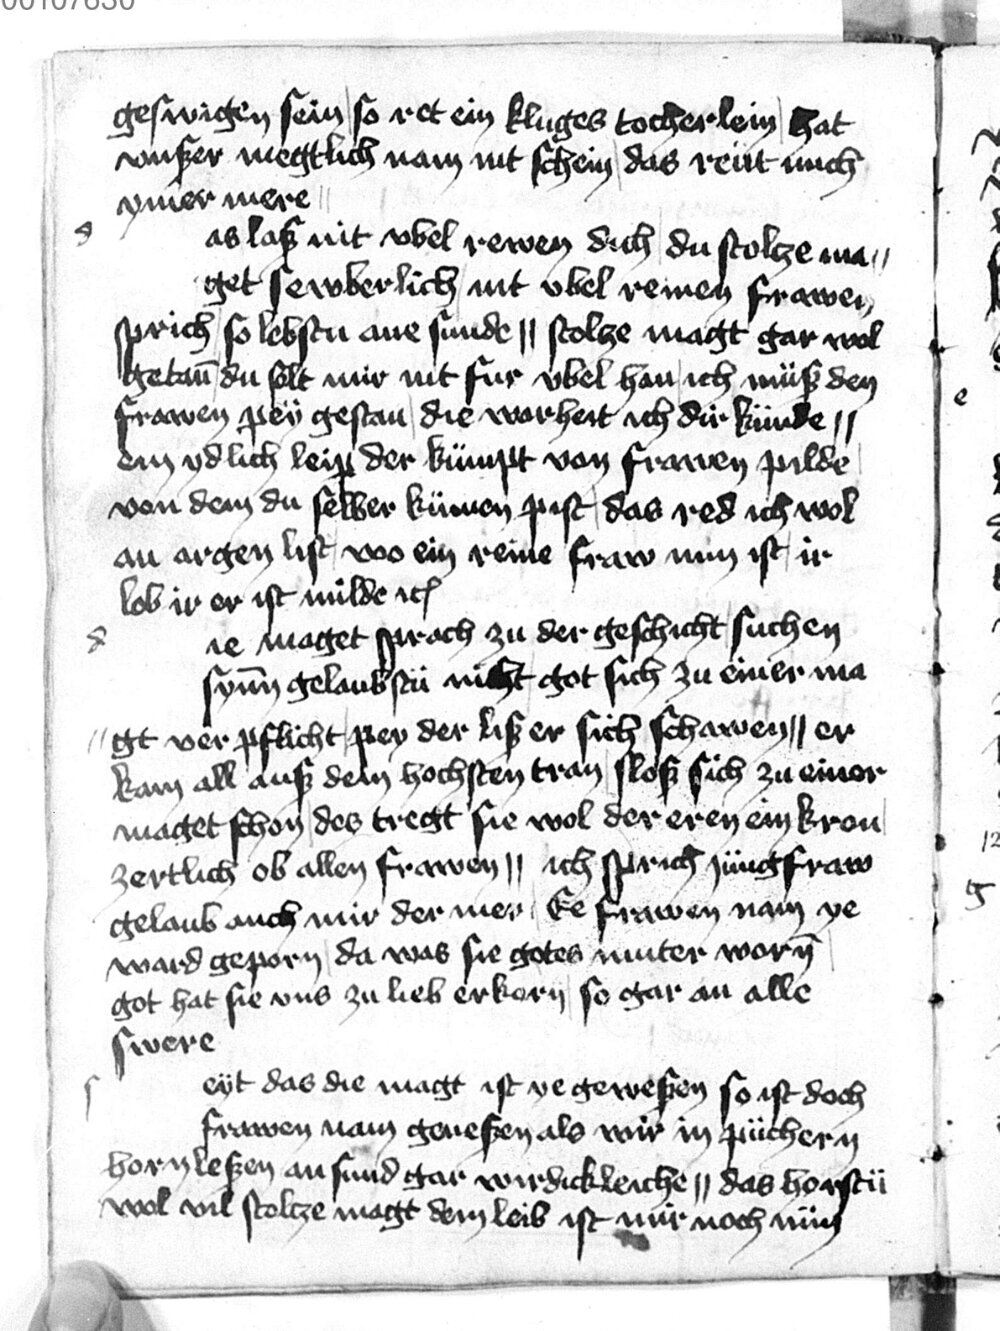 00107630
geswigen sein | so ret ein kluges tocherlein | hat
vnßer megtlich nam nit schein | das reüt mich
ymer mere ||
d as laß nit vbel rewen dich | du stoltze ma //
get sewberlich | nit vbel reinen frawen
sprich | so lebstu ane sunde || stoltze magt gar wol
getan̄ | du solt mir nit fur vbel han | ich müß den
frawen peÿ gestan | die warheit ich dir künde ||
ein ydlich leip der kümpt von frawen pilde |
von dem du selber kumen pist | das red ich wol
an argen list | wo ein reine fraw nun ist | ir
lob ir er ist milde etc
d ie maget sprach zu der geschicht | suchen
synn̄ gelaubstü nicht got sich zu einer ma
// gt ver pflicht | pey der liß er sich schawen || er
kam all auß dem hochsten tran | sloß sich zu einer
maget schon | des tregt sie wol der eren ein kron |
zertlich ob allen frawen || ich sprich jüngfraw
gelaub auch mir der mer | Ee frawen nam ye
ward geporn | da was sie gotes muter worn̄ |
got hat sie vns zu lieb erkorn | so gar an alle
swere
s eÿt das die magt ist ye geweßen so ist doch
frawen nam geneßen als wir in püchern
horn leßen an sund gar wirdickleiche || das horstü
wol vil stoltze magt dem leib ist mir noch nün